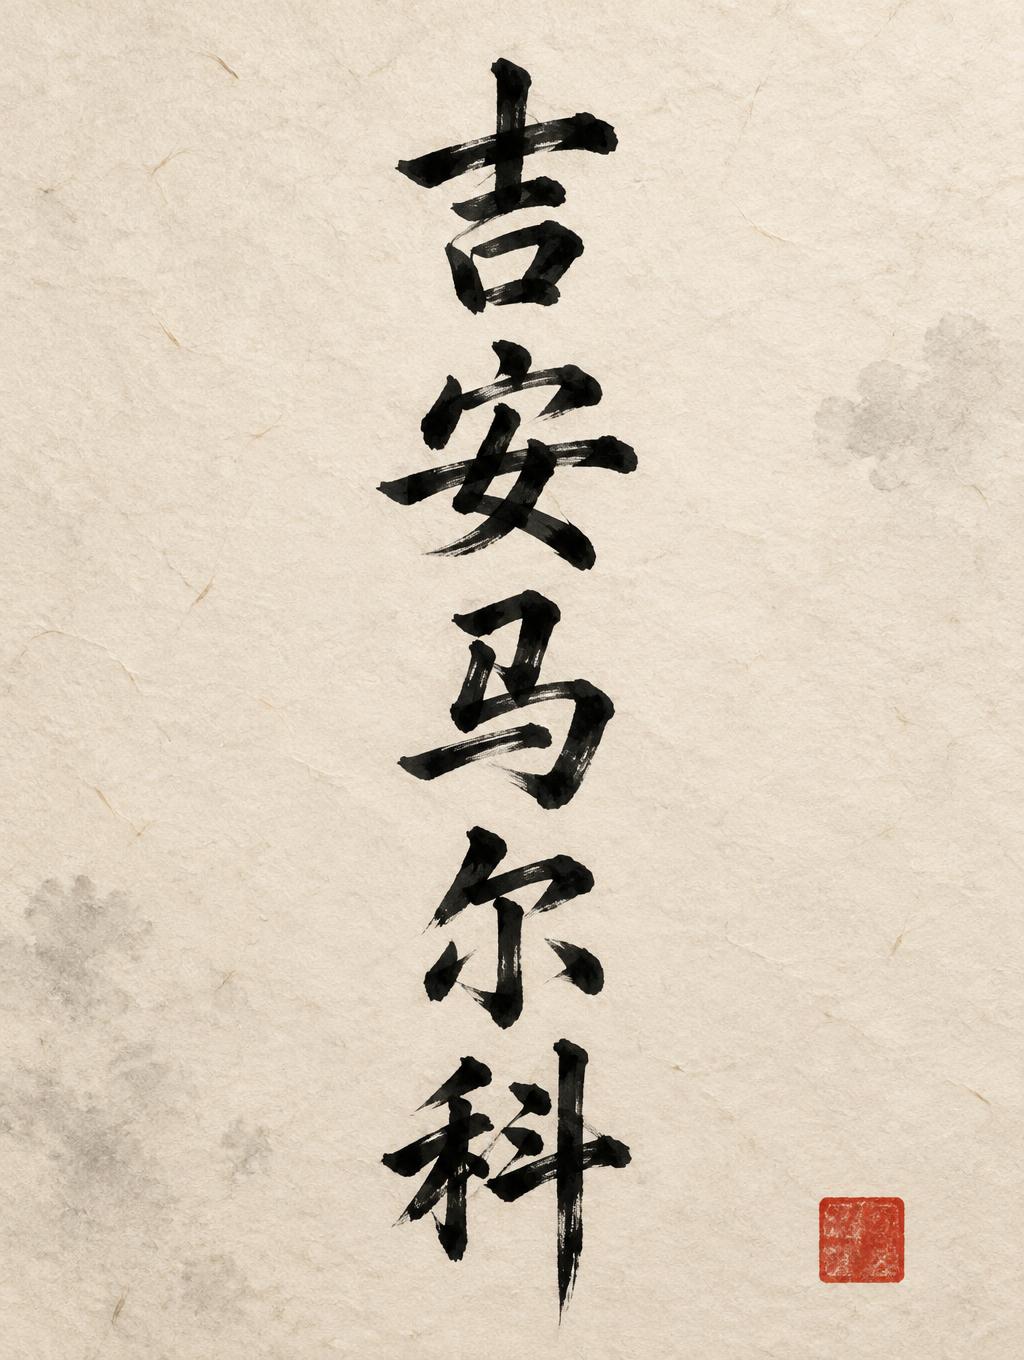 吉安马尔科